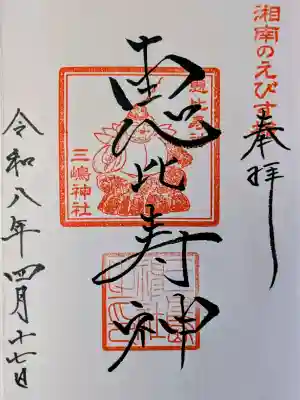 湘南のえびす
奉拝
恵比寿神
三嶋神社
令和八年四月十七日